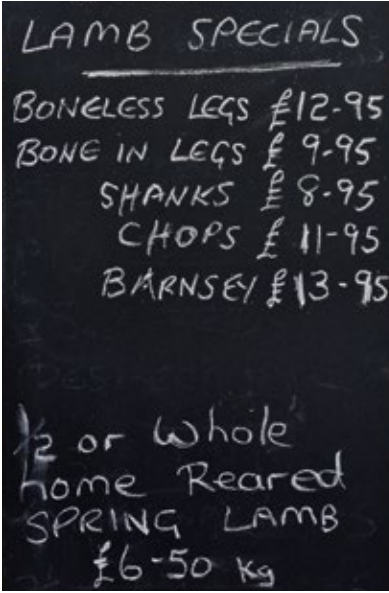 LAMB SPECIALS
BONELESS LEGS £12-95
BONE IN LEGS £ 9-95
SHANKS £ 8-95
CHOPS £ 11-95
BARNSEY £13-95
1/2 or Whole
home Reared
SPRING LAMB
£6-50 Kg